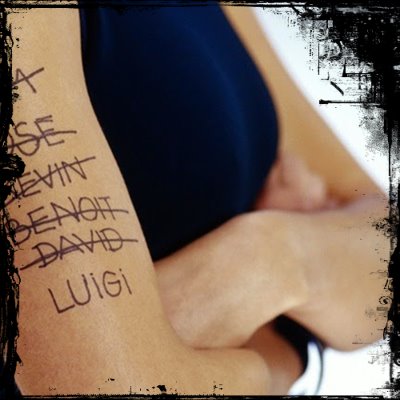 A
SE
EVIN
BENOIT
DAVID
LUiGi